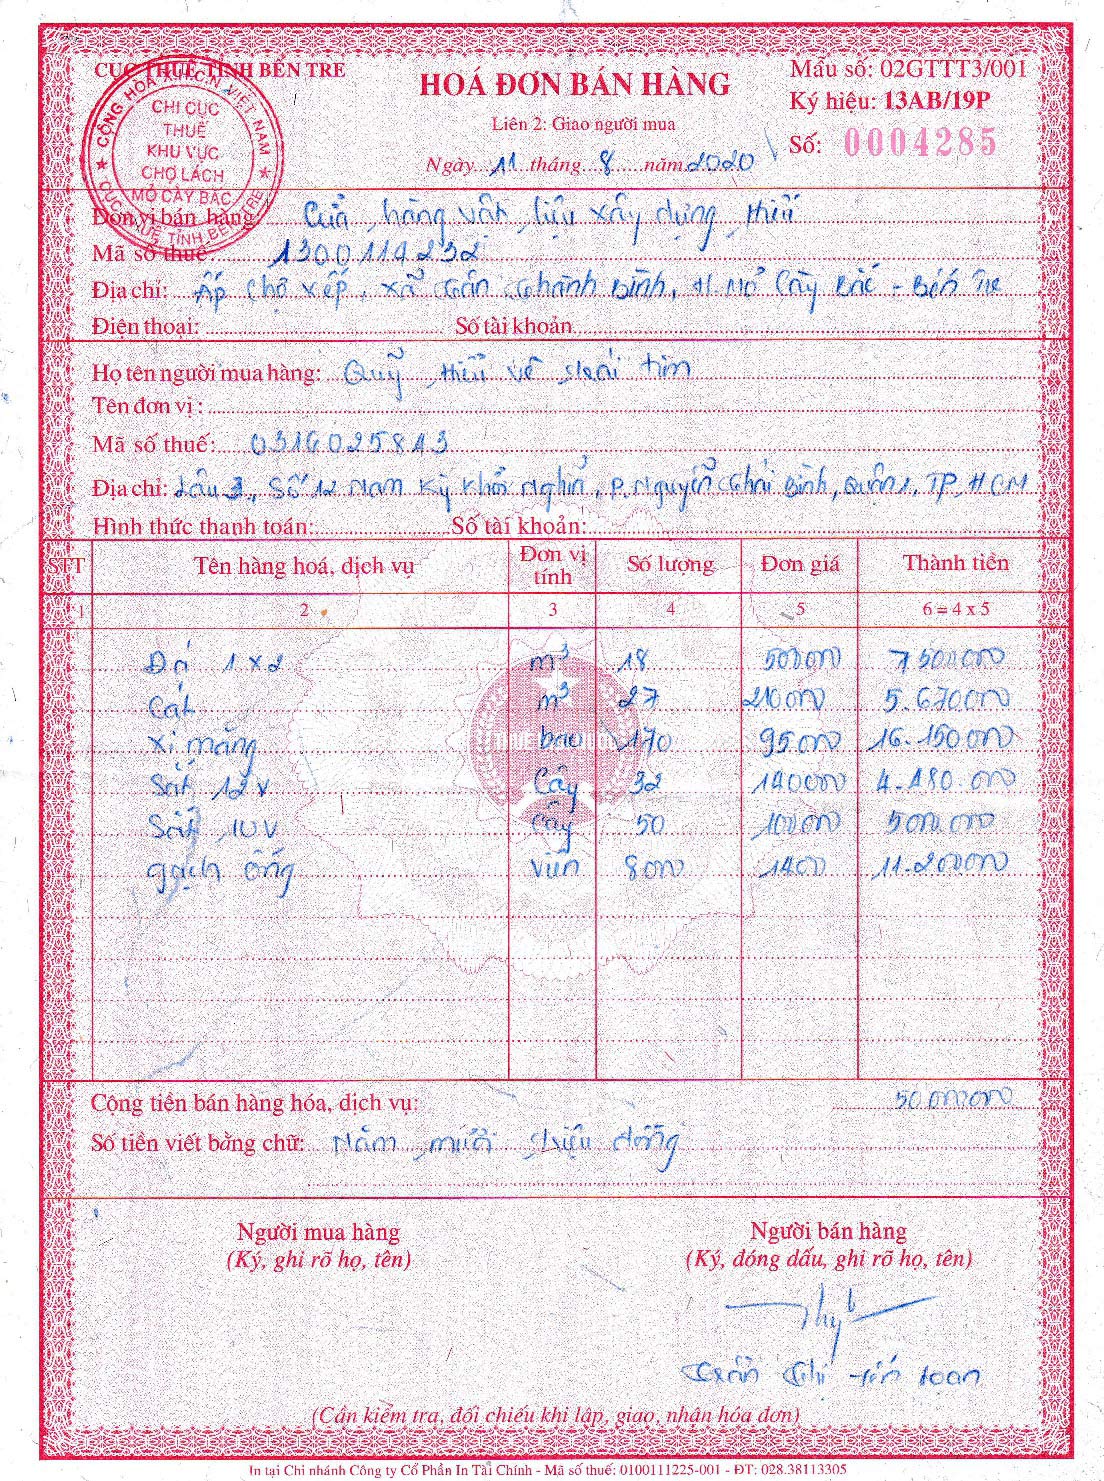 CỤC THUẾ TỈNH BẾN TRE
HOÁ ĐƠN BÁN HÀNG
Mẫu số: 02GTTT3/001
Ký hiệu: 13AB/19P
Liên 2: Giao người mua
Số: 0004285
Ngày 11 tháng 8 năm 2020
CỘNG HOÀ X.H.C.N VIỆT NAM
CHI CỤC
THUẾ
KHU VỰC
CHỢ LÁCH
MỎ CÀY BẮC
CỤC THUẾ TỈNH BẾN TRE
Đơn vị bán hàng: Cửa hàng vật liệu xây dựng
Mã số thuế: 1300114232
Địa chỉ: Ấp Chợ Xếp, xã Tân Thành Bình, H. Mỏ Cày Bắc - Bến Tre
Điện thoại: Số tài khoản
Họ tên người mua hàng: Quỹ Hiểu về trái tim
Tên đơn vị :
Mã số thuế: 0316025813
Địa chỉ: Lầu 3, Số 12 Nam Kỳ Khởi Nghĩa, P. Nguyễn Thái Bình, Quận 1, TP, HCM
Hình thức thanh toán: Số tài khoản:
STT Tên hàng hoá, dịch vụ Đơn vị tính Số lượng Đơn giá Thành tiền
1 2 3 4 5 6 = 4 x 5
Đá 1 x 2 m³ 18 500000 7500000
Cát m³ 27 210000 5.670000
Xi măng bao 170 95000 16.150000
Sắt 12 v Cây 32 140000 4.480.000
Sắt 10 v Cây 50 100000 5000.000
gạch ống viên 8000 1400 11.200000
Cộng tiền bán hàng hóa, dịch vụ: 50.000000
Số tiền viết bằng chữ: Năm mươi triệu đồng
Người mua hàng Người bán hàng
(Ký, ghi rõ họ, tên) (Ký, đóng dấu, ghi rõ họ, tên)
Trần Thị
(Cần kiểm tra, đối chiếu khi lập, giao, nhận hóa đơn)
In tại Chi nhánh Công ty Cổ Phần In Tài Chính - Mã số thuế: 0100111225-001 - ĐT: 028.38113305